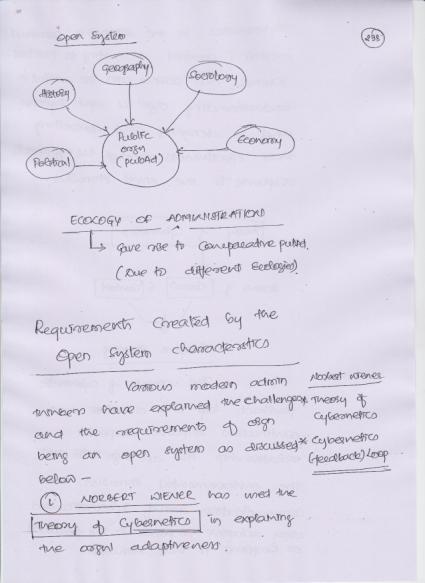 Open System
298
Geography
Sociology
History
Public
orgn
(pubAd)
Economy
Political
ECOLOGY OF ADMINISTRATION
Gave rise to Comparative pubAd.
(Due to different Ecologies).
Requirements Created by the
Open System characteristics
Various modern admin
thinkers have explained the challenges
and the requirements of orgn
being an open system as discussed
below –
Norbert Wiener
* Theory of
Cybernetics
* Cybernetics
(feedback) Loop
1 NORBERT WIENER has used the
Theory of Cybernetics in explaining
the orgnl adaptiveness.